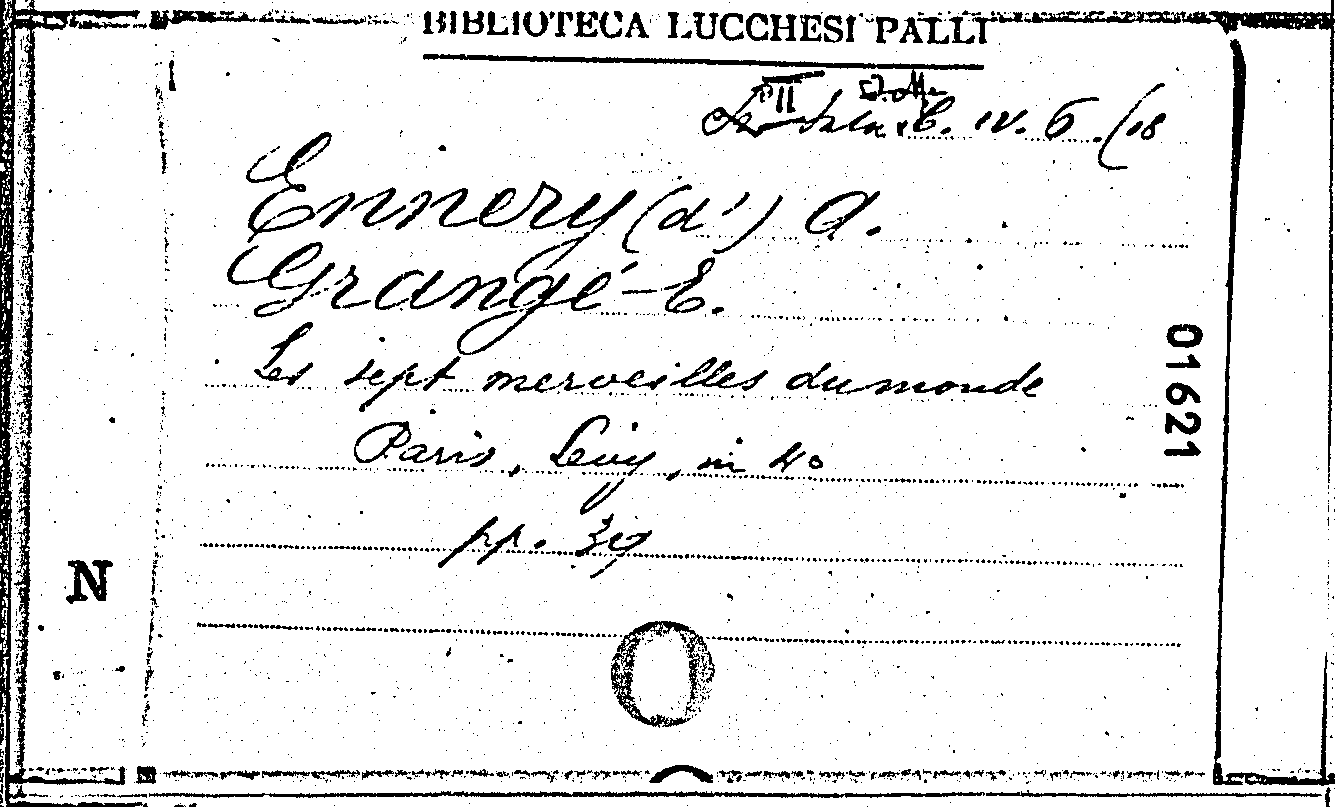 BIBLIOTECA LUCCHESI PALLI
II Sala C. IV. 6. (18
Ennery (d') A.
Grangé-E.
Les sept merveilles du monde
Paris, Levy, in 4o
pp. 39
01621
N